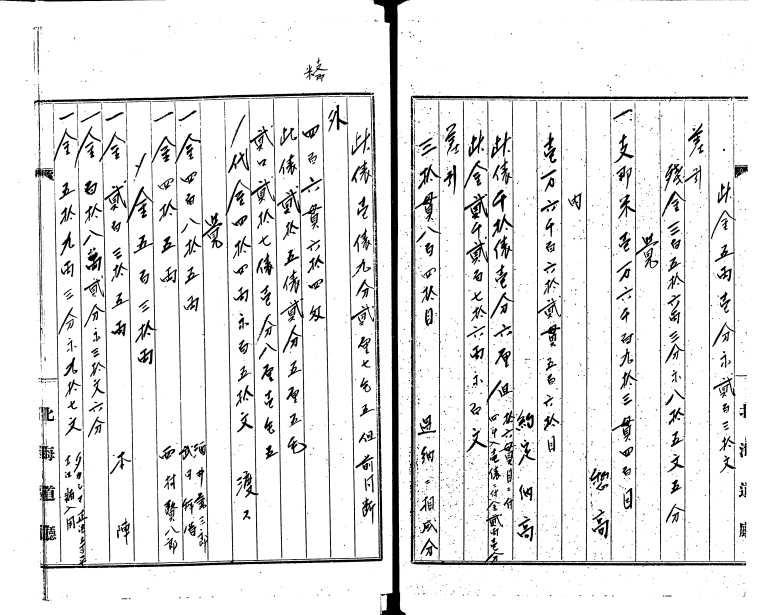 此金五両壱分ト貳百三拾文
差引
残金三百五拾六両三分ト八拾五文五分
覚
一支那米壱万六千百九拾三貫四百目
惣高
内
壱万六千百六拾貳貫五百六拾目
約定納高
此俵千拾俵壱分六厘但
拾六貫目ニ付
此金貳千貳百七拾六両ト百文
差引
三拾貫八百四拾目
過納ニ相成分
此俵壱俵九分貳厘七毛五但前同断
外
四百六貫六拾四匁
此俵貳拾五俵貳分五厘五毛
貳口貳拾七俵壱分八厘壱毛五
〆代金四拾四両ト百五拾文
渡ス
覚
一金四百八拾五両
一金四拾五両
西村賢八郎
〆金五百三拾両
一金貳百三拾五両
本陣
一金百拾八両貳分ト三拾文六分
一金五拾九両三分ト九拾七文
北海道廳